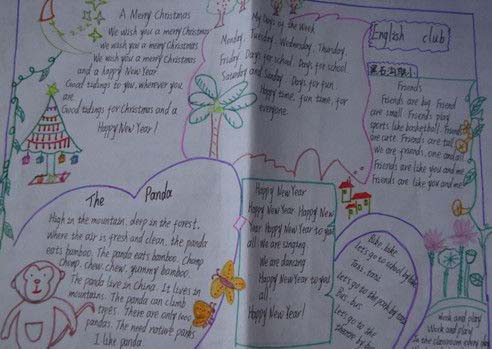 A Merry Christmas
We wish you a merry Christmas
We wish you a merry Christmas
We wish you a merry Christmas
and a happy New Year
Good tidings to you, wherever you
are
Good tidings for Christmas and a
Happy New Year!
My Days of the Week
Monday, Tuesday, Wednesday, Thursday
Friday. Days for school. Days for school
Saturday and Sunday. Days for fun
Happy time, fun time, for
everyone.
English club
Friends
Friends are big. Friend
are small. Friends play
sports like basketball. Friend
are cute. Friends are tall
We are friends, one and all
Friends are like you and me
Friends are like you and me!
The Panda
High in the mountain, deep in the forest,
where the air is fresh and clean, the panda
eats bamboo. The panda eats bamboo. Chomp
Chomp, chew, chew, yummy bamboo.
The panda live in China. It lives in
mountains. The panda can climb
trees. There are only 1000
pandas. The need nature parks
I like panda
Happy New Year
Happy New Year Happy New
Year Happy New Year to you
all We are singing
We are dancing
Happy New Year to you
all
Happy New Year!
Bike, bike
Let's go to school by bike
Taxi, taxi
Let's go to the park by taxi
Bus, bus
Let's go to the
by bus
Work and play
Work and play
In the classroom every day